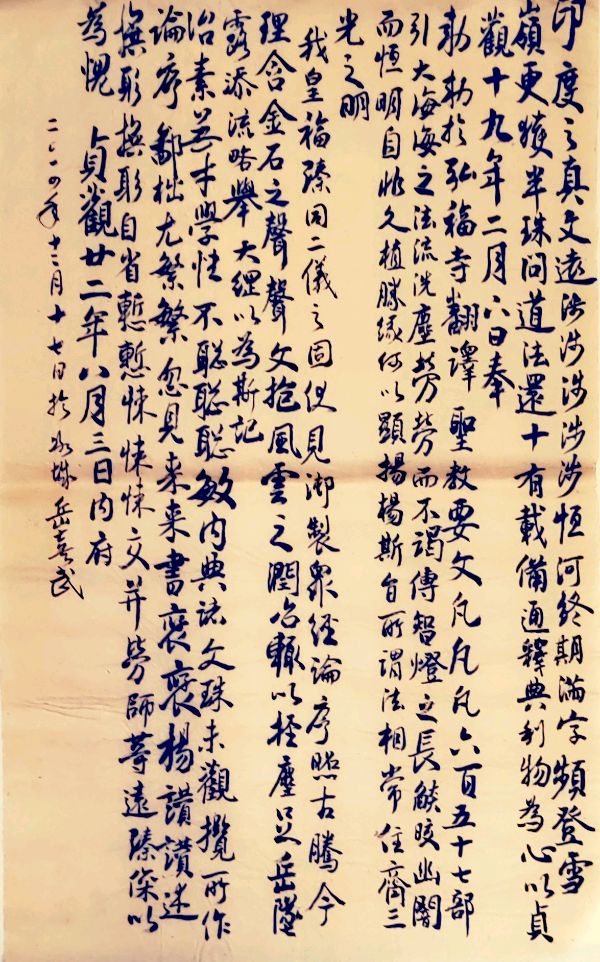 印度之真文遠涉涉涉涉涉恒河終期滿字頻登雪
嶺更獲半珠問道法還十有載備通釋典利物為心以貞
觀十九年二月六日奉
勅勅於弘福寺翻譯聖教要文凡凡凡六百五十七部
引大海海之法流洗塵勞勞而不竭傳智燈之長燄皎幽闇
而恒明自非久植勝緣何以顯揚揚斯旨所謂法相常住齊三
光之明
我皇福臻同二儀之固伏見御製眾經論序照古騰今
理含金石之聲聲文抱風雲之潤治輒以輕塵足岳墜
露添流略舉大綱以為斯記
治素無才學性不聰聰聰敏內典諸文殊未觀攬所作
論序鄙拙尤繁繁忽見來來書褒褒揚讚讚述
撫躬撫躬自省慙慙悚悚悚交并勞師等遠臻深以
為愧 貞觀廿二年八月三日內府
二〇〇四年十二月十七日於 岳喜武